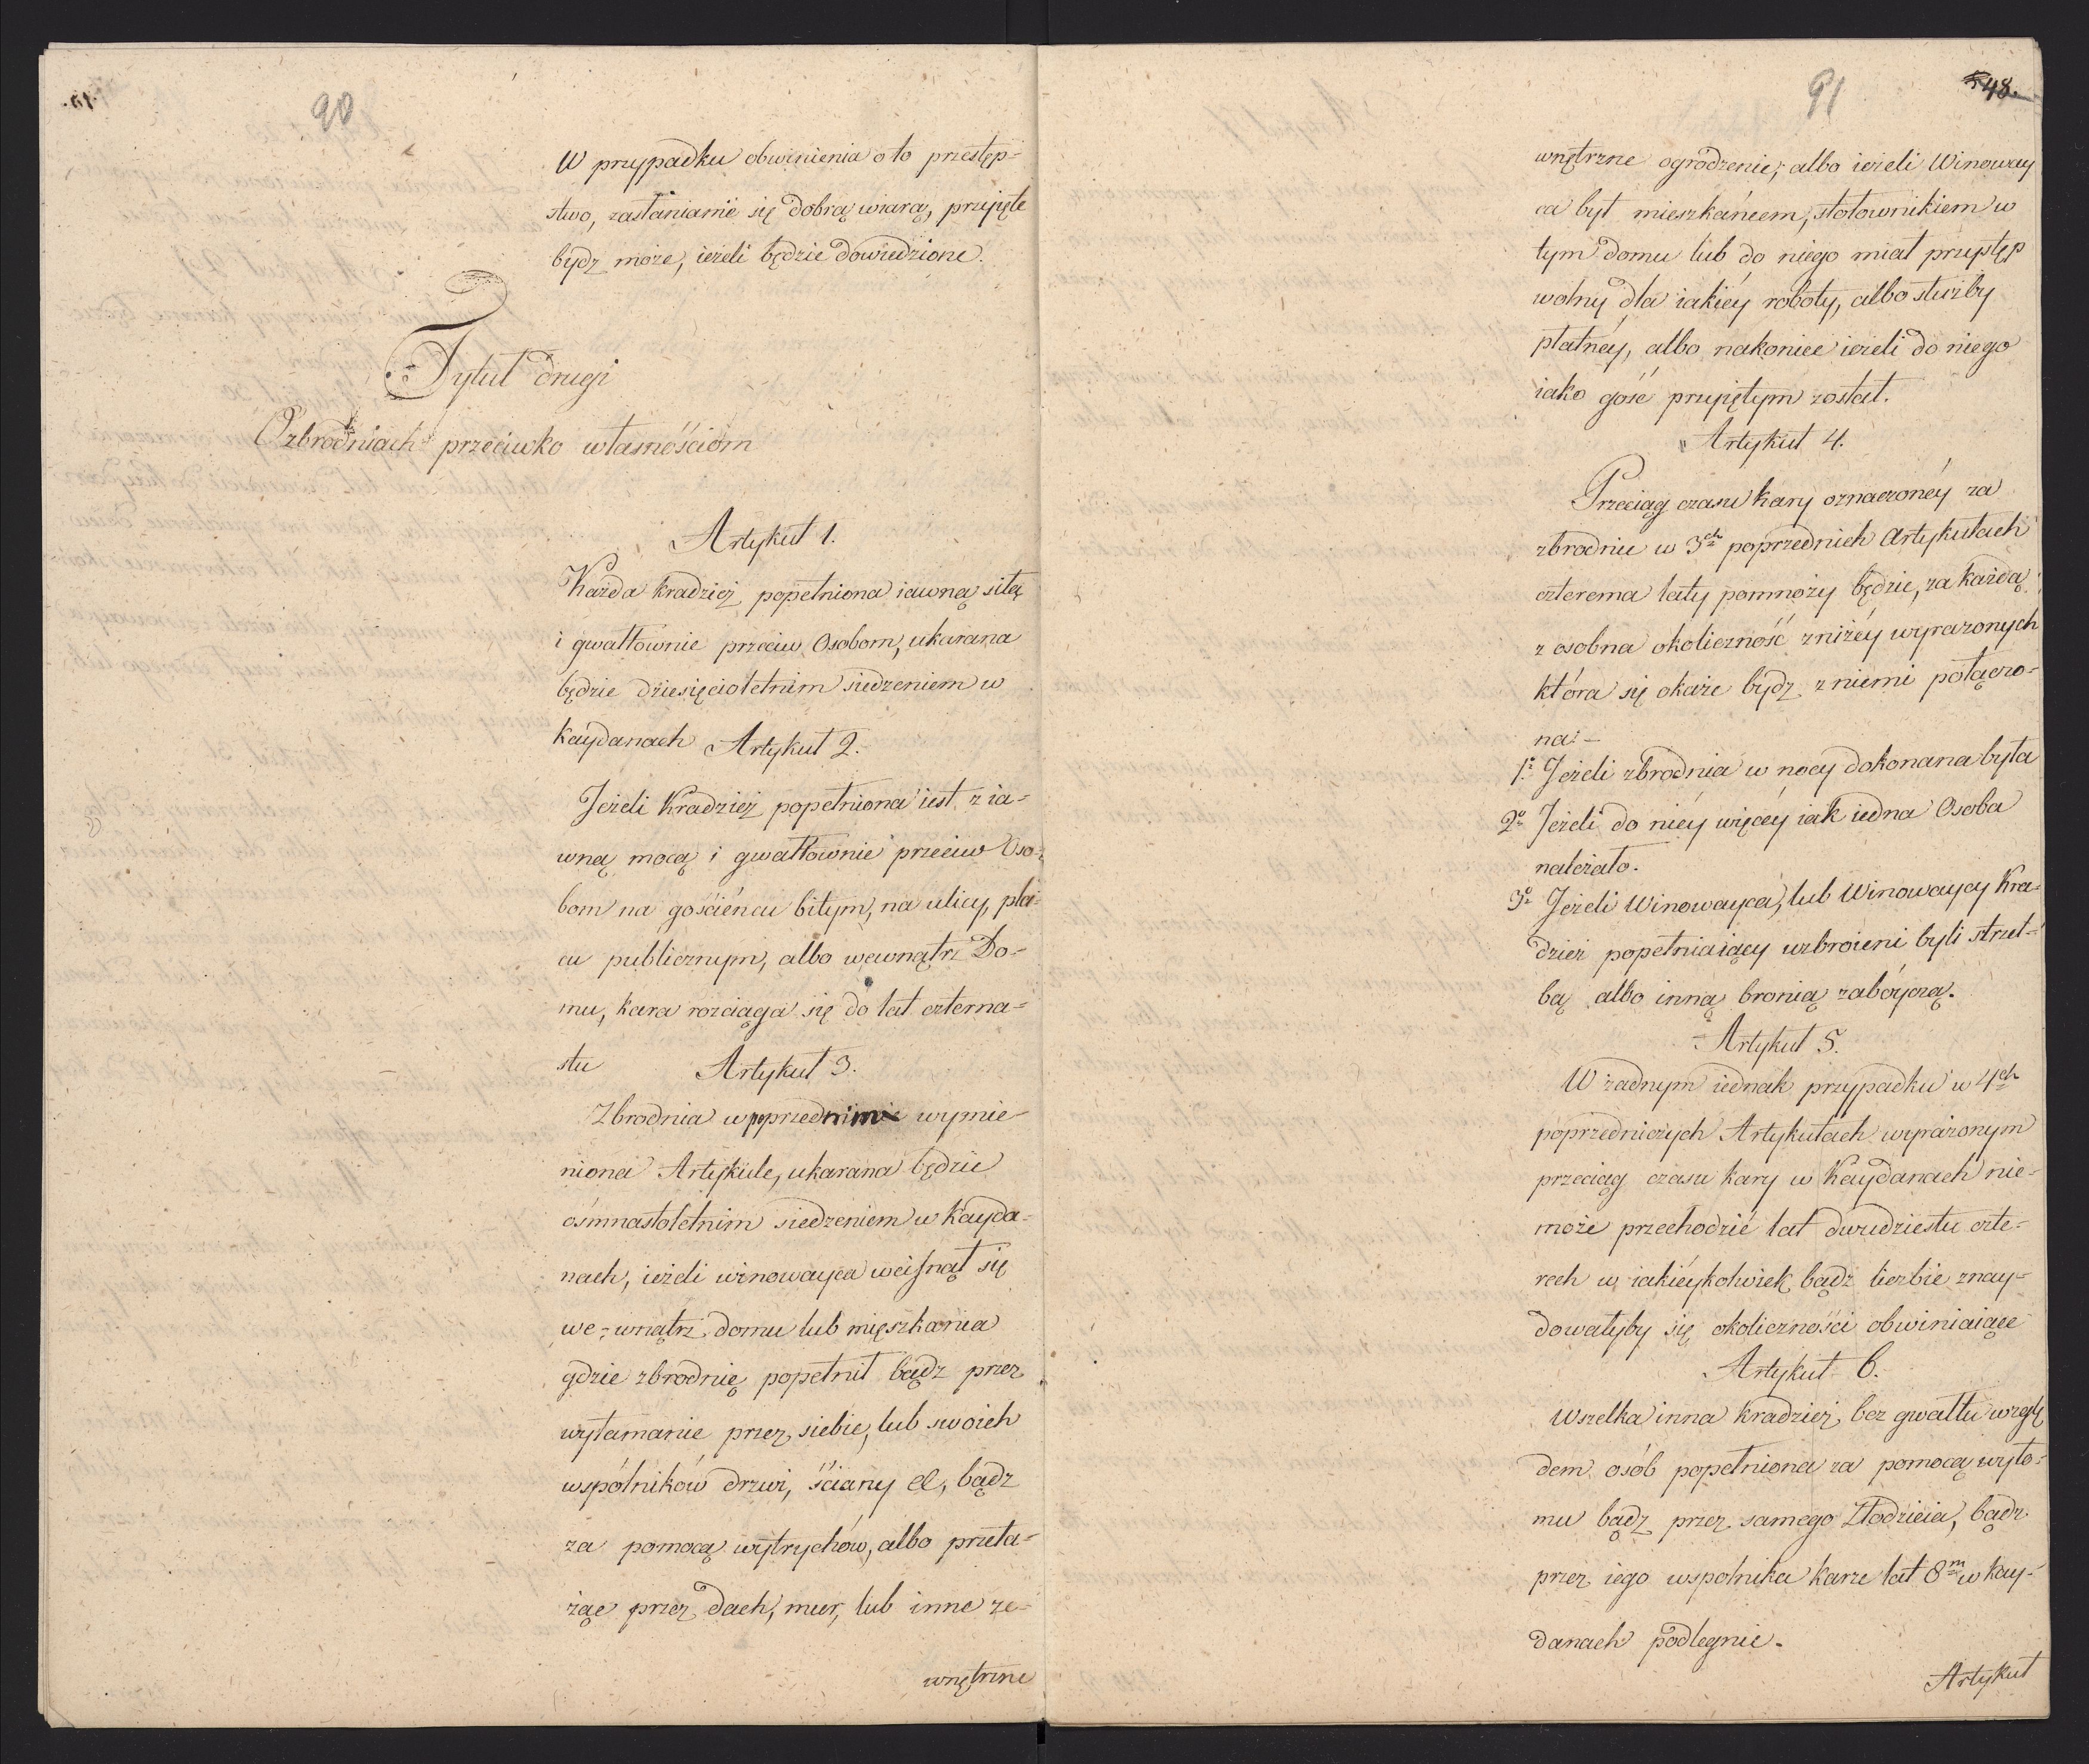 90
W przypadku obwinienia o to przestęp=
stwo, zasłanianie się dobrą wiarą, przyjęte
bydz może, ieżeli będzie dowiedzione.
Tytuł drugi
O zbrodniach przeciwko własnościom
Artykuł 1.
Każda kradzież popełniona iawną siłą
i gwałtownie przeciw Osobom, ukarana
będzie dziesięcioletnim siedzeniem w
kaydanach
Artykuł 2.
Jeżeli Kradzież popełniona iest z ia=
wną mocą i gwałtownie przeciw Oso=
bom na gościeńcu bitym, na ulicy, pla=
cu publicznym, albo wewnątrz Do=
mu, kara rozciąga się do lat czterna=
stu
Artykuł 3.
Zbrodnia w poprzednimie wymie
niona Artykule, ukarana będzie
ośmnastoletnim siedzeniem w Kayda=
nach, ieżeli winowayca wcisnął się
we=wnątrz domu lub mięszkania
gdzie zbrodnię popełnił bądz przez
wyłamanie przez siebie, lub swoich
wspólników drzwi, ściany &, bądz
za pomocą wytrychów, albo przeła=
żąc przez dach, mur, lub inne ze=
wnętrzne
91
48.
wnętrzne ogrodzenie; albo ieżeli Winoway
ca był mieszkańcem, stołownikiem w
tym domu lub do niego miał przystęp
wolny dla iakiéy roboty, albo służby
płatnéy, albo nakoniec ieżeli do niego
iako gość przyjętym został.
Artykuł 4.
Przeciąg czasu kary oznaczonéy za
zbrodnie w 3ch poprzednich Artykułach
czterema laty pomnoży będzie, za każdą
z osobna okoliczność zniżéy wyrażonych
która się okaże bydz z niemi połączo=
na:–
1o Jeżeli zbrodnia w nocy dokonana była
2o Jeżeli do niéy więcéy iak iedna Osoba
należało.
3o Jeżeli Winowayca, lub Winowaycy Kra=
dzież popełniaiący uzbroieni byli strzel=
bą albo inną bronią zabóyczą.
Artykuł 5.
W żadnym iednak przypadku w 4ch
poprzedniczych Artykułach wyrażonym
przeciąg czasu kary w Kaydanach nie=
może przechodzić lat dwudziestu czte=
rech w iakiéykolwiek bądz liczbie znay=
dowałyby się okoliczności obwiniaiące
Artykuł 6.
Wszelka inna Kradzież bez gwałtu wzglę
dem osób popełniona za pomocą wyło=
mu bądz przez samego Złodzieia, bądz
przez iego wspolnika karze lat 8m w kay=
danach podlegnie.
Artykuł